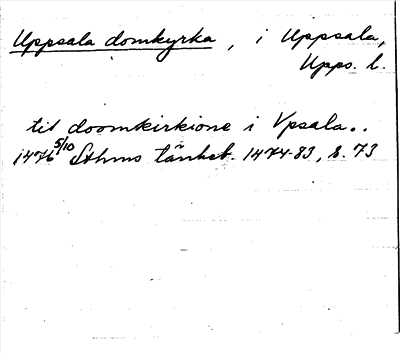 Uppsala domkyrka, i Uppsala,
Upps. l.
til doomkirkione i Vpsala..
1476 5/10 Sthms tänkeb. 1474-83, s. 73